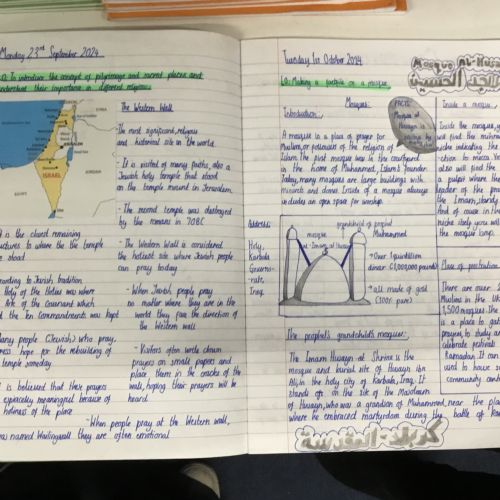 Monday 23rd September 2024
LO: To introduce the concept of pilgrimage and sacred places and
understand their importance in different religions.
SYRIA
JERUSALEM
ISRAEL
JORDAN
EGYPT
The Western Wall
The most significant, religious
and historical site in the world
- It is visited of many faiths, also a
Jewish holy temple that stood
on the temple mount in Jerusalem.
- The second temple was destroyed
by the romans in 70BC
- The Western Wall is considered
the holiest site where Jewish people
can pray today
- When Jewish people pray
no matter where they are in the
world they face the direction of
the Western wall
- Visitors often write down
prayers on small papers and
place them in the cracks of the
wall, hoping their prayers will be
heard
- When people pray at the Western wall,
they are often emotional
is the closest remaining
structures to where the the temple
stood
According to Jewish tradition
Holy of the Holies was where
Ark of the Covenant which
the ten Commandments was kept
Many people (Jewish) who pray,
hope for the rebuilding of
temple someday
is believed that their prayers
especially meaningful because of
holiness of the place
was named Wailing wall
Tuesday 1st October 2024
LO: Making a factfile on a mosque
Mosque Al-Husa
مسجد الحسين
Mosques
Introduction
A mosque is a place of prayer for
Muslim, or followers of the religion of
Islam. The first mosque was in the courtyard
in the home of Muhammed, Islam's founder.
Today, many mosques are large buildings with
minarets and domes. Inside of a mosque always
includes an open space for worship.
FACT:
Mosque al
Husayn is
Inside a mosque
Inside the mosque, y
will find the mihrab
niche indicating the
ction to mecca. Yo
also will find the
a pulpit where the
leader of the pra
the Imam, stands
And of course in the
niche likely you wil
the mosque lamp.
Address:
Holy,
Karbala
Governo-
rate,
Iraq.
grandchild of prophet
Muhammed
mosque
al-Imam al Husay
→ Over 1 quadrillion
dinar (£1,000,000 pounds)
→ all made of gold
(100% pure)
Place of
There are over
Muslims in the U
1,500 mosques. The
is a place to gat
prayers, to study an
celebrate festivals
Ramadan. It can
used to house s
community cent
The prophet's grandchild's mosque:
The Imam Husayn at Shrine is the
mosque and burial site of Husayn ibn
Ali, in the holy city of Karbala, Iraq. It
stands on the site of the Mausoleum
of Husayn, who was a grandson of Muhammad, near the pla
where he embraced martyrdom during the battle of ka
كربلاء المقدسة